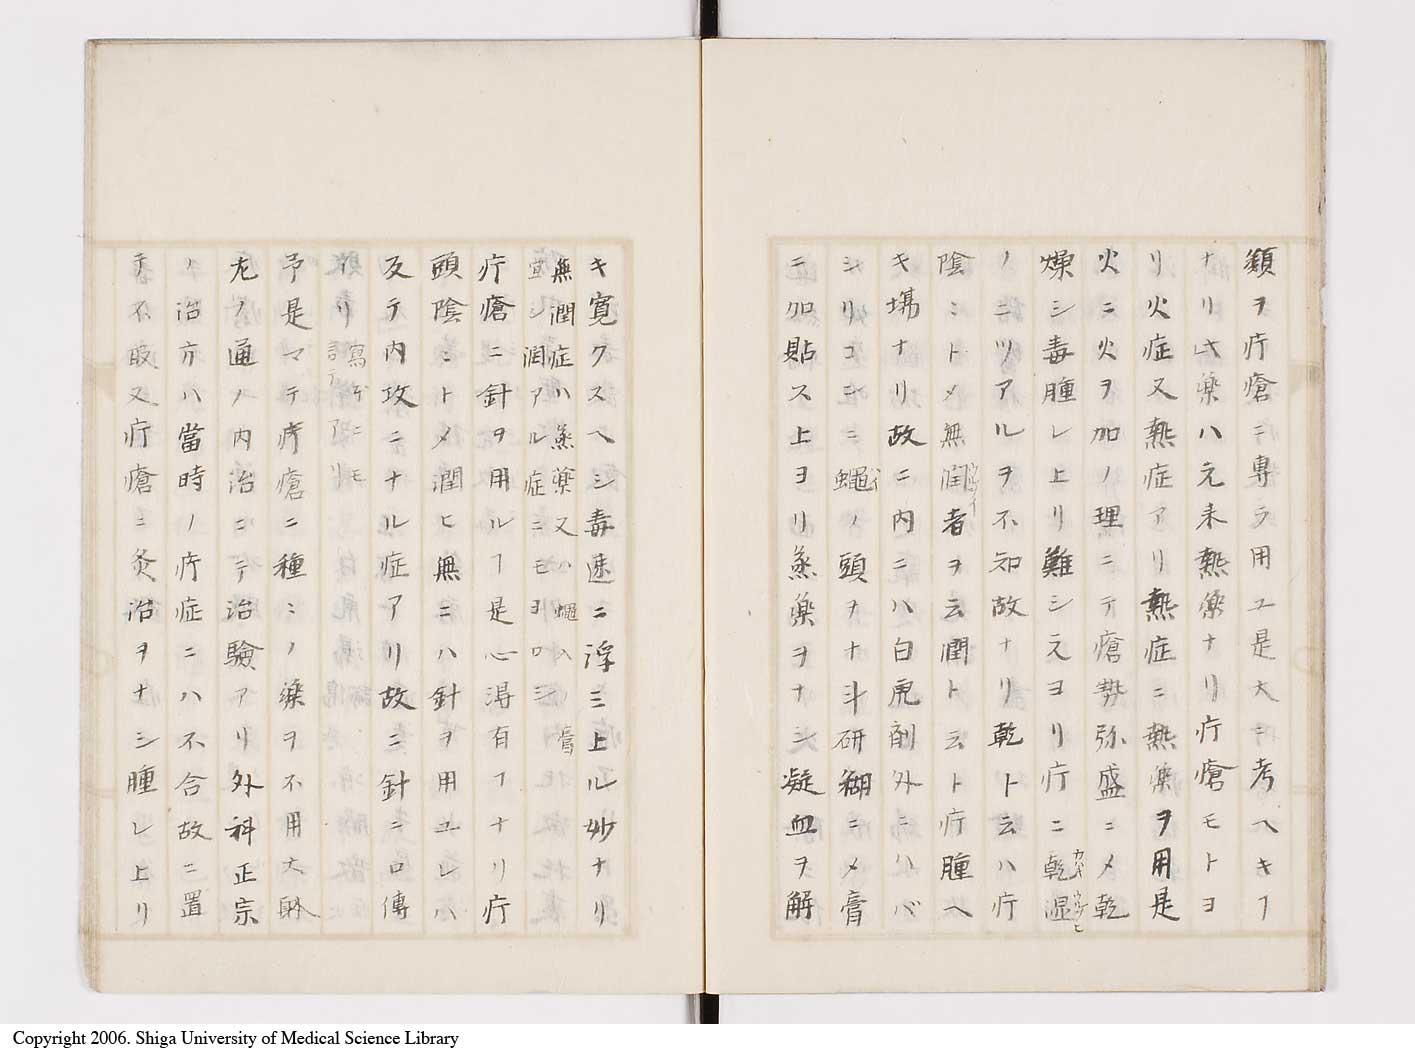 類ヲ疔瘡ニ専ラ用ユ是大ニ考ヘキヿ
ナリ此薬ハ元来熱薬ナリ疔瘡モトヨ
リ火症又熱症アリ熱症ニ熱薬ヲ用是
火ニ火ヲ加ノ理ニテ瘡勢弥盛ニメ乾
燥シ毒腫レ上リ難シ元ヨリ疔ニ乾湿
ノニツアルヲ不知故ナリ乾ト云ハ疔
陰ミトメ無潤者ヲ云潤ト云ト疔腫ヘ
キ場ナリ故ニ内ニハ白虎剤外ニハバ
シリコンニ蠅ノ頭ヲナ斗研糊ニメ膏
ニ加貼ス上ヨリ蒸薬ヲナシ凝血ヲ解
キ寛クスヘシ毒速ニ浮ミ上ル妙ナリ
無潤症ハ蒸薬又ハ蠅入膏
宜シ潤アル症ニモヨロシ
疔瘡ニ針ヲ用ルヿ是心得有ヿナリ疔
頭陰ミトメ潤ヒ無ニハ針ヲ用ユレハ
反テ内攻ニナル症アリ故ニ針ニ口傳
アリ
予是マテ疔瘡ニ種ミノ薬ヲ不用大躰
左ノ通ノ内治ニテ治験アリ外科正宗
ノ治方ハ當時ノ疔症ニハ不合故ニ置
テ不取又疔瘡ニ灸治ヲナシ腫レ上リ
Copyright 2006. Shiga University of Medical Science Library